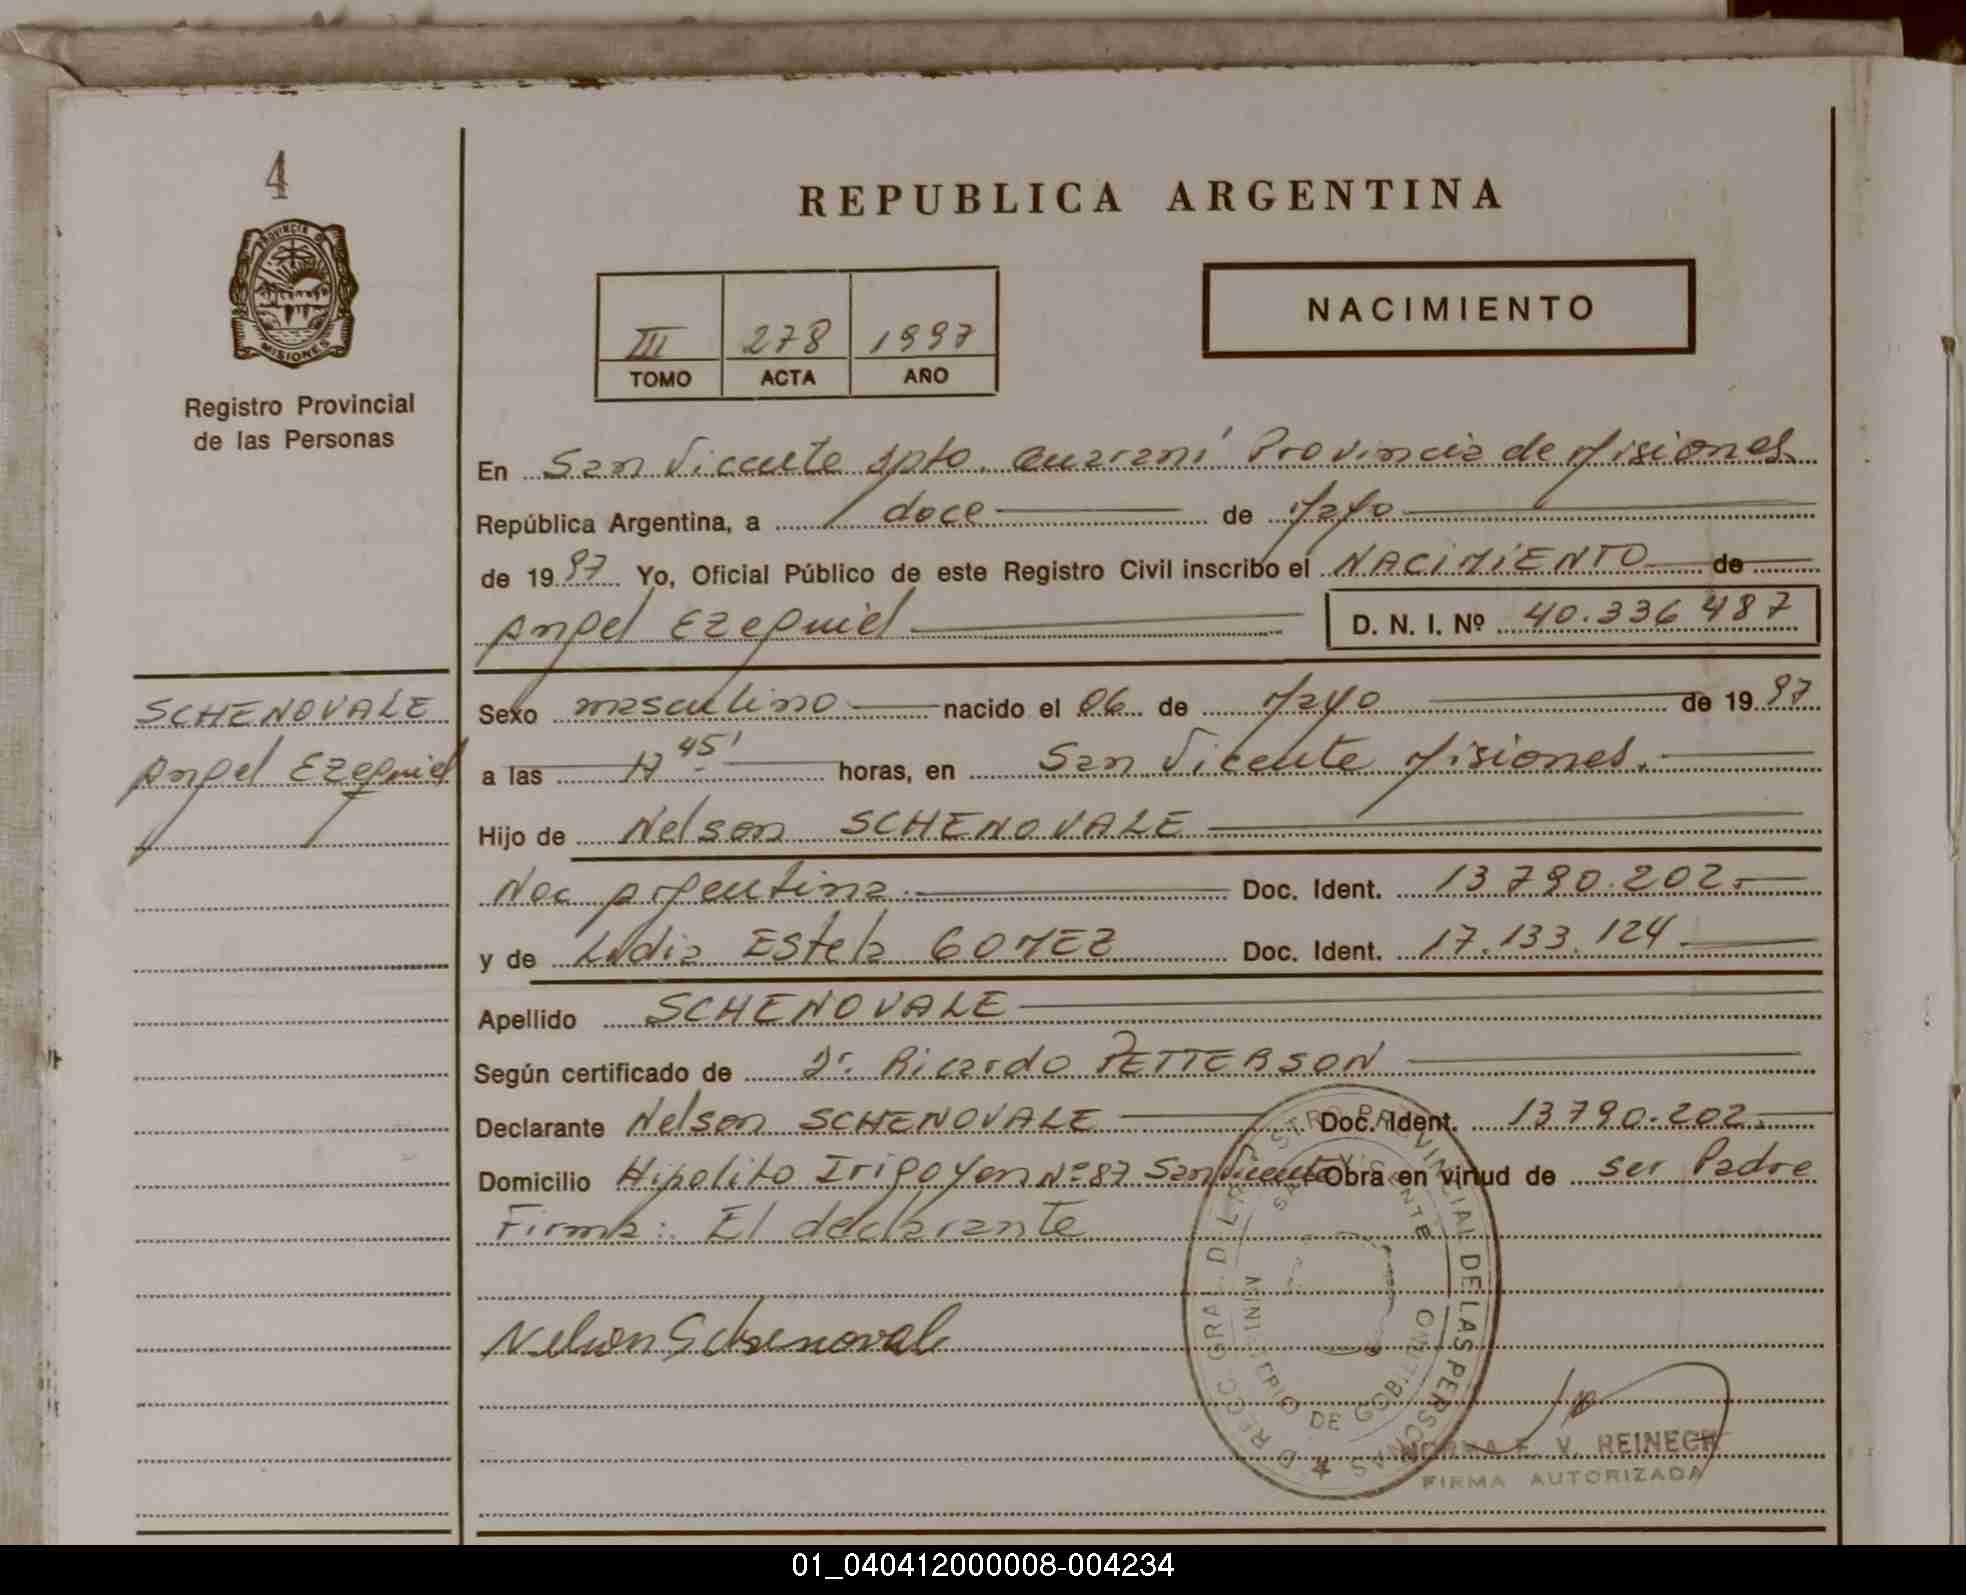 4
PROVINCIA DE
MISIONES
Registro Provincial
de las Personas
REPUBLICA ARGENTINA
III 278 1997
TOMO ACTA AÑO
NACIMIENTO
En San Vicente Dpto. Guaraní Provincia de Misiones
República Argentina, a doce de Mayo
de 1997 Yo, Oficial Público de este Registro Civil inscribo el NACIMIENTO de
Angel Ezequiel D. N. I. Nº 40.336 487
SCHENOVALE
Angel Ezequiel
Sexo masculino nacido el 06 de Mayo de 1997
a las 17 45' horas, en San Vicente Misiones.
Hijo de Nelson SCHENOVALE
Nac Argentina. Doc. Ident. 13 790.202.
y de Lidia Estela GOMEZ Doc. Ident. 17.133.124
Apellido SCHENOVALE
Según certificado de Dr. Ricardo PETTERSON
Declarante Nelson SCHENOVALE Doc. Ident. 13790.202.
Domicilio Hipolito Irigoyen Nº 87 San Vicente Obra en virtud de ser Padre
Firma: El declarante
Nelson Schenovale
REGISTRO PROVINCIAL DE LAS PERSONAS
SAN VICENTE
MINISTERIO DE GOBIERNO
NORMA F. V. REINECK
FIRMA AUTORIZADA
01_040412000008-004234